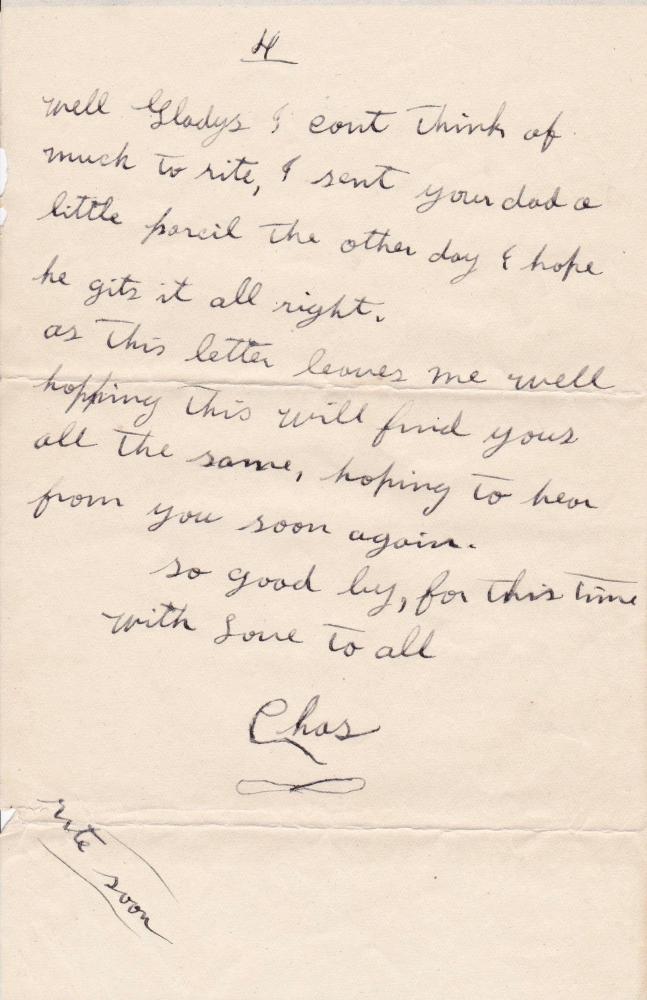 4
well Gladys I cont think of
much to rite, I sent your dad a
little parcil the other day & hope
he gits it all right.
as this letter leaves me well
hopping this will find yous
all the same, hoping to hear
from you soon again.
so good by, for this time
with Love to all
Chas
rite soon